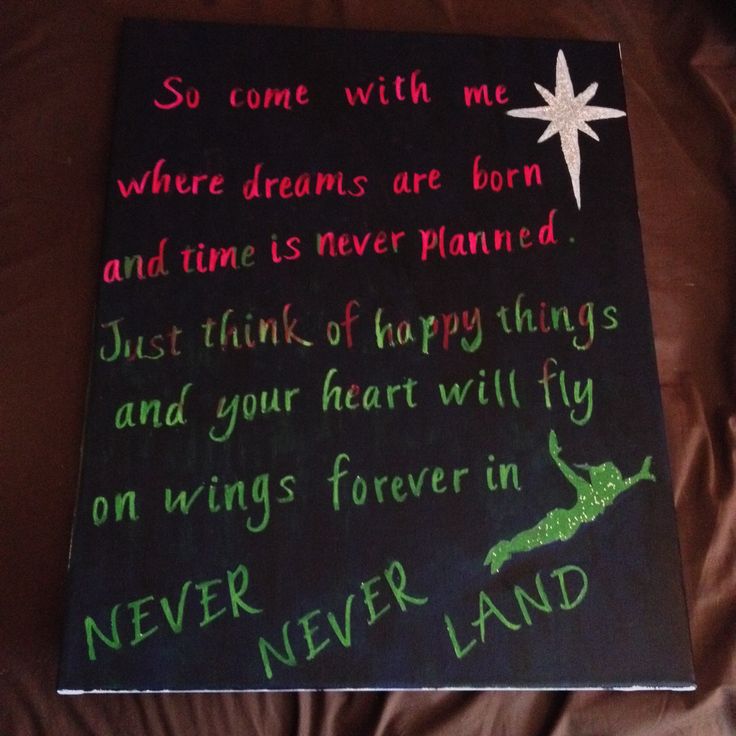 So come with me
where dreams are born
and time is never planned.
Just think of happy things
and your heart will fly
on wings forever in
NEVER NEVER LAND